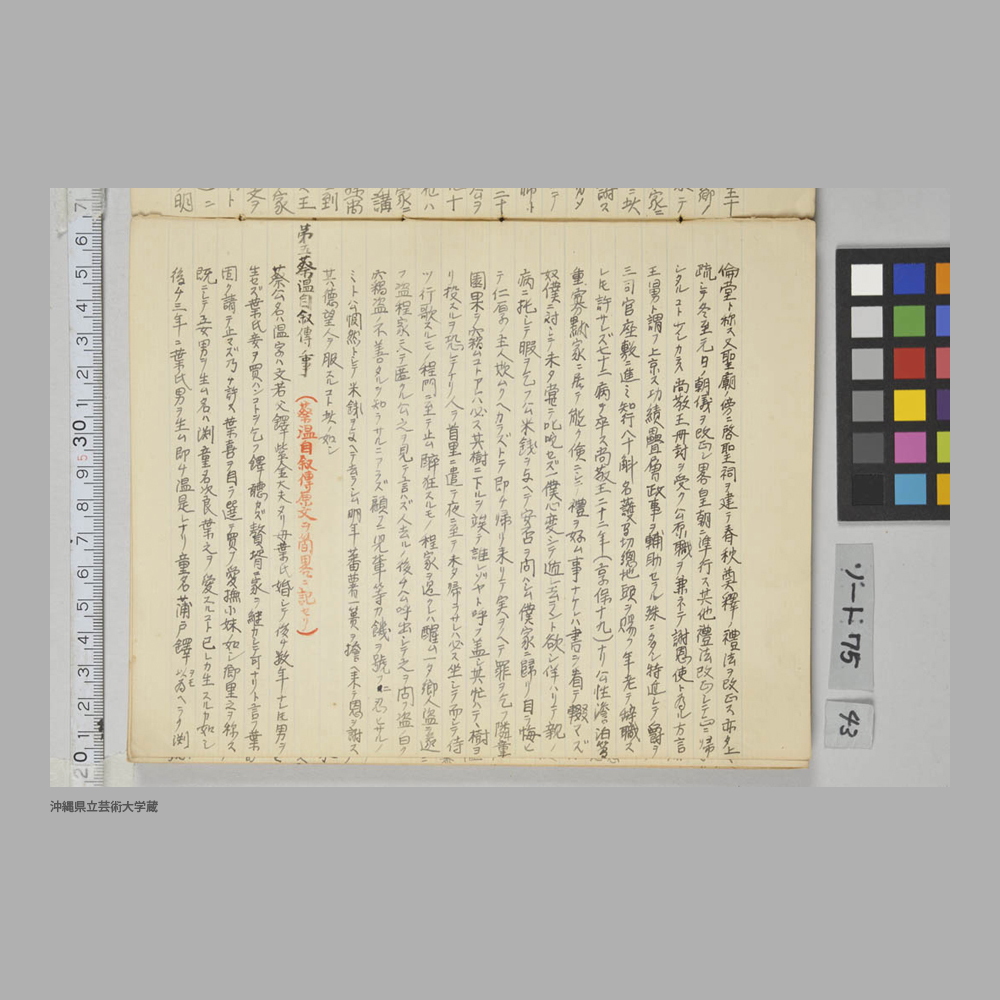 倫堂ト称ス又聖廟ノ傍ニ啓聖祠ヲ建テ春秋奠釋ノ禮法ヲ改正ス亦タ上
疏シテ冬至元日ノ朝儀ヲ改正シ畧皇朝ニ準行ス其他禮法改正シテ正ニ帰
シタルコト少レカラス 尚敬王冊封ヲ受ク公本職ヲ兼ネテ謝恩使トナル方言
王舅ト謂フ上京ス功績疊膺政事ヲ輔助セラル殊ニ特進シテ爵ヲ
三司官座敷ニ進ミ知行八十斛名護間切總地頭ヲ賜フ年老ヲ辞職ス
レ圧許サレズ七十二病ヲ卒ス尚敬王二十二年(享保十九)ナリ公性澹泊
重寡黙家ニ居テ能ク倹ニシ禮ヲ好ム事ナケレハ書ニ着テ輟マズ
奴僕ニ対シテ未タ嘗テ叱咤セズ一僕心変シテ逃レ去ラント欲シ佯ハリテ親ノ
病ニ托シテ暇ヲ乞フ公米銭ヲ与ヘテ安否ヲ問ハシム僕家ニ歸リ自ラ悔ヒ
テ仁厚ノ主人欺ムクヘカラズトテ即チ帰リ来リテ実ヲヘテ罪ヲ乞フ隣童
園果ヲ竊ムコトアレハ必ス其樹ニ下ルヲ竢テ誰レジャト呼フ蓋シ其忙ハテ樹ヨ
リ投スルヲ恐レテナリ人ヲ首里ニ遣テ夜ニ至テ未タ帰ヲサレハ必ス坐シテ而シテ待
ツ行歌スルモノ程門ニ至テ止ム醉狂スルモノ程家ヲ過クレハ醒ム一夕鄕人盗ヲ逐
フ盗程家ニ匿クル公之ヲ見テ言ハズ人去ルノ後チハ呼出シテ之ヲ問フ盗曰ク
竊盗ノ不善タルヲ知ラサルニアラズ顧フニ児輩等カ饑ヲ號フニ忍ヒサル
ミト公惻然トシテ米銭ヲ与ヘテ去ラシム明年蕃薯一簣ヲ擔ヘ来テ恩ヲ謝ス
其德望人ヲ服スルコト此ノ如シ
第五蔡温自叙傳ノ事 (蔡温自叙傳原文ヲ簡畧ニ記セリ)
蔡公名ハ温字ハ文若父鐸紫金大夫タリ母葉氏婚シテ後チ数年ナレ圧男ヲ
生マズ葉氏妾ヲ買ハンコトヲ乞フ鐸聴カズ贅壻亦家ヲ継カシヒ可ナリト言フ葉
固ク請テ止マズ乃チ許ス葉喜テ自ラ選テ買ヲ愛撫小妹ノ如シ郷里之ヲ称ス
既ニシテ妾男ヲ生ム名ハ渊童名次良葉之ヲ愛スルコト己レカ生スルカ如シ
後チ二年ニ葉氏男ヲ生ム即チ温是レナリ童名蒲戸鐸以為ヘラク渊
30
ソード:75
43
沖縄県立芸術大学蔵